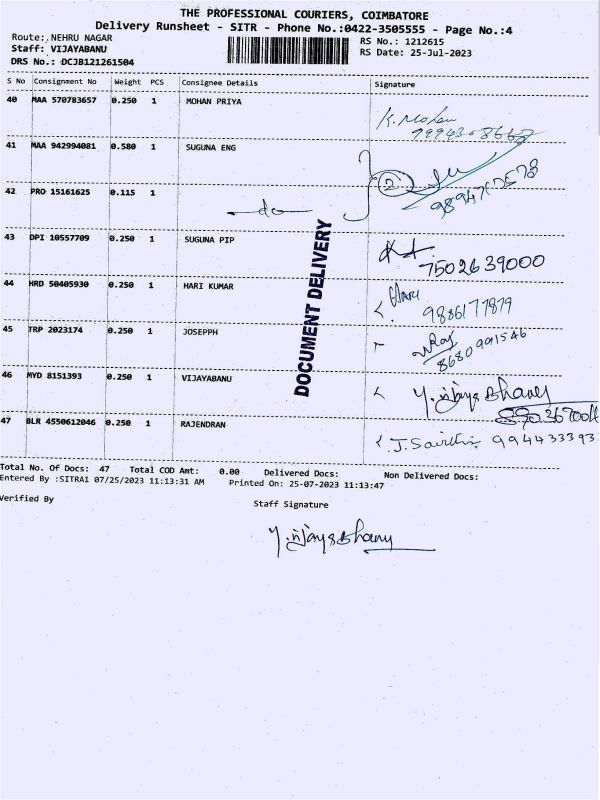 THE PROFESSIONAL COURIERS, COIMBATORE
Delivery Runsheet - SITR - Phone No.:0422-3505555 - Page No.:4
Route: NEHRU NAGAR RS No.: 1212615
Staff: VIJAYABANU RS Date: 25-Jul-2023
DRS No.: DCJB121261504
S No Consignment No Weight PCS Consignee Details Signature
40 MAA 570783657 0.250 1 MOHAN PRIYA
K. Mohan
41 MAA 942994081 0.580 1 SUGUNA ENG
2
42 PRO 15161625 0.115 1
do
43 DPI 10557709 0.250 1 SUGUNA PIP
7502639000
44 HRD 50405930 0.250 1 HARI KUMAR
9886177879
45 TRP 2023174 0.250 1 JOSEPPH
8680991546
46 MYD 8151393 0.250 1 VIJAYABANU
Y. Vijaya Bhanu
47 BLR 4550612046 0.250 1 RAJENDRAN
994433393
DOCUMENT DELIVERY
Total No. Of Docs: 47 Total COD Amt: 0.00 Delivered Docs: Non Delivered Docs:
Entered By :SITRA1 07/25/2023 11:13:31 AM Printed On: 25-07-2023 11:13:47
Verified By Staff Signature
Y. Vijaya Bhanu